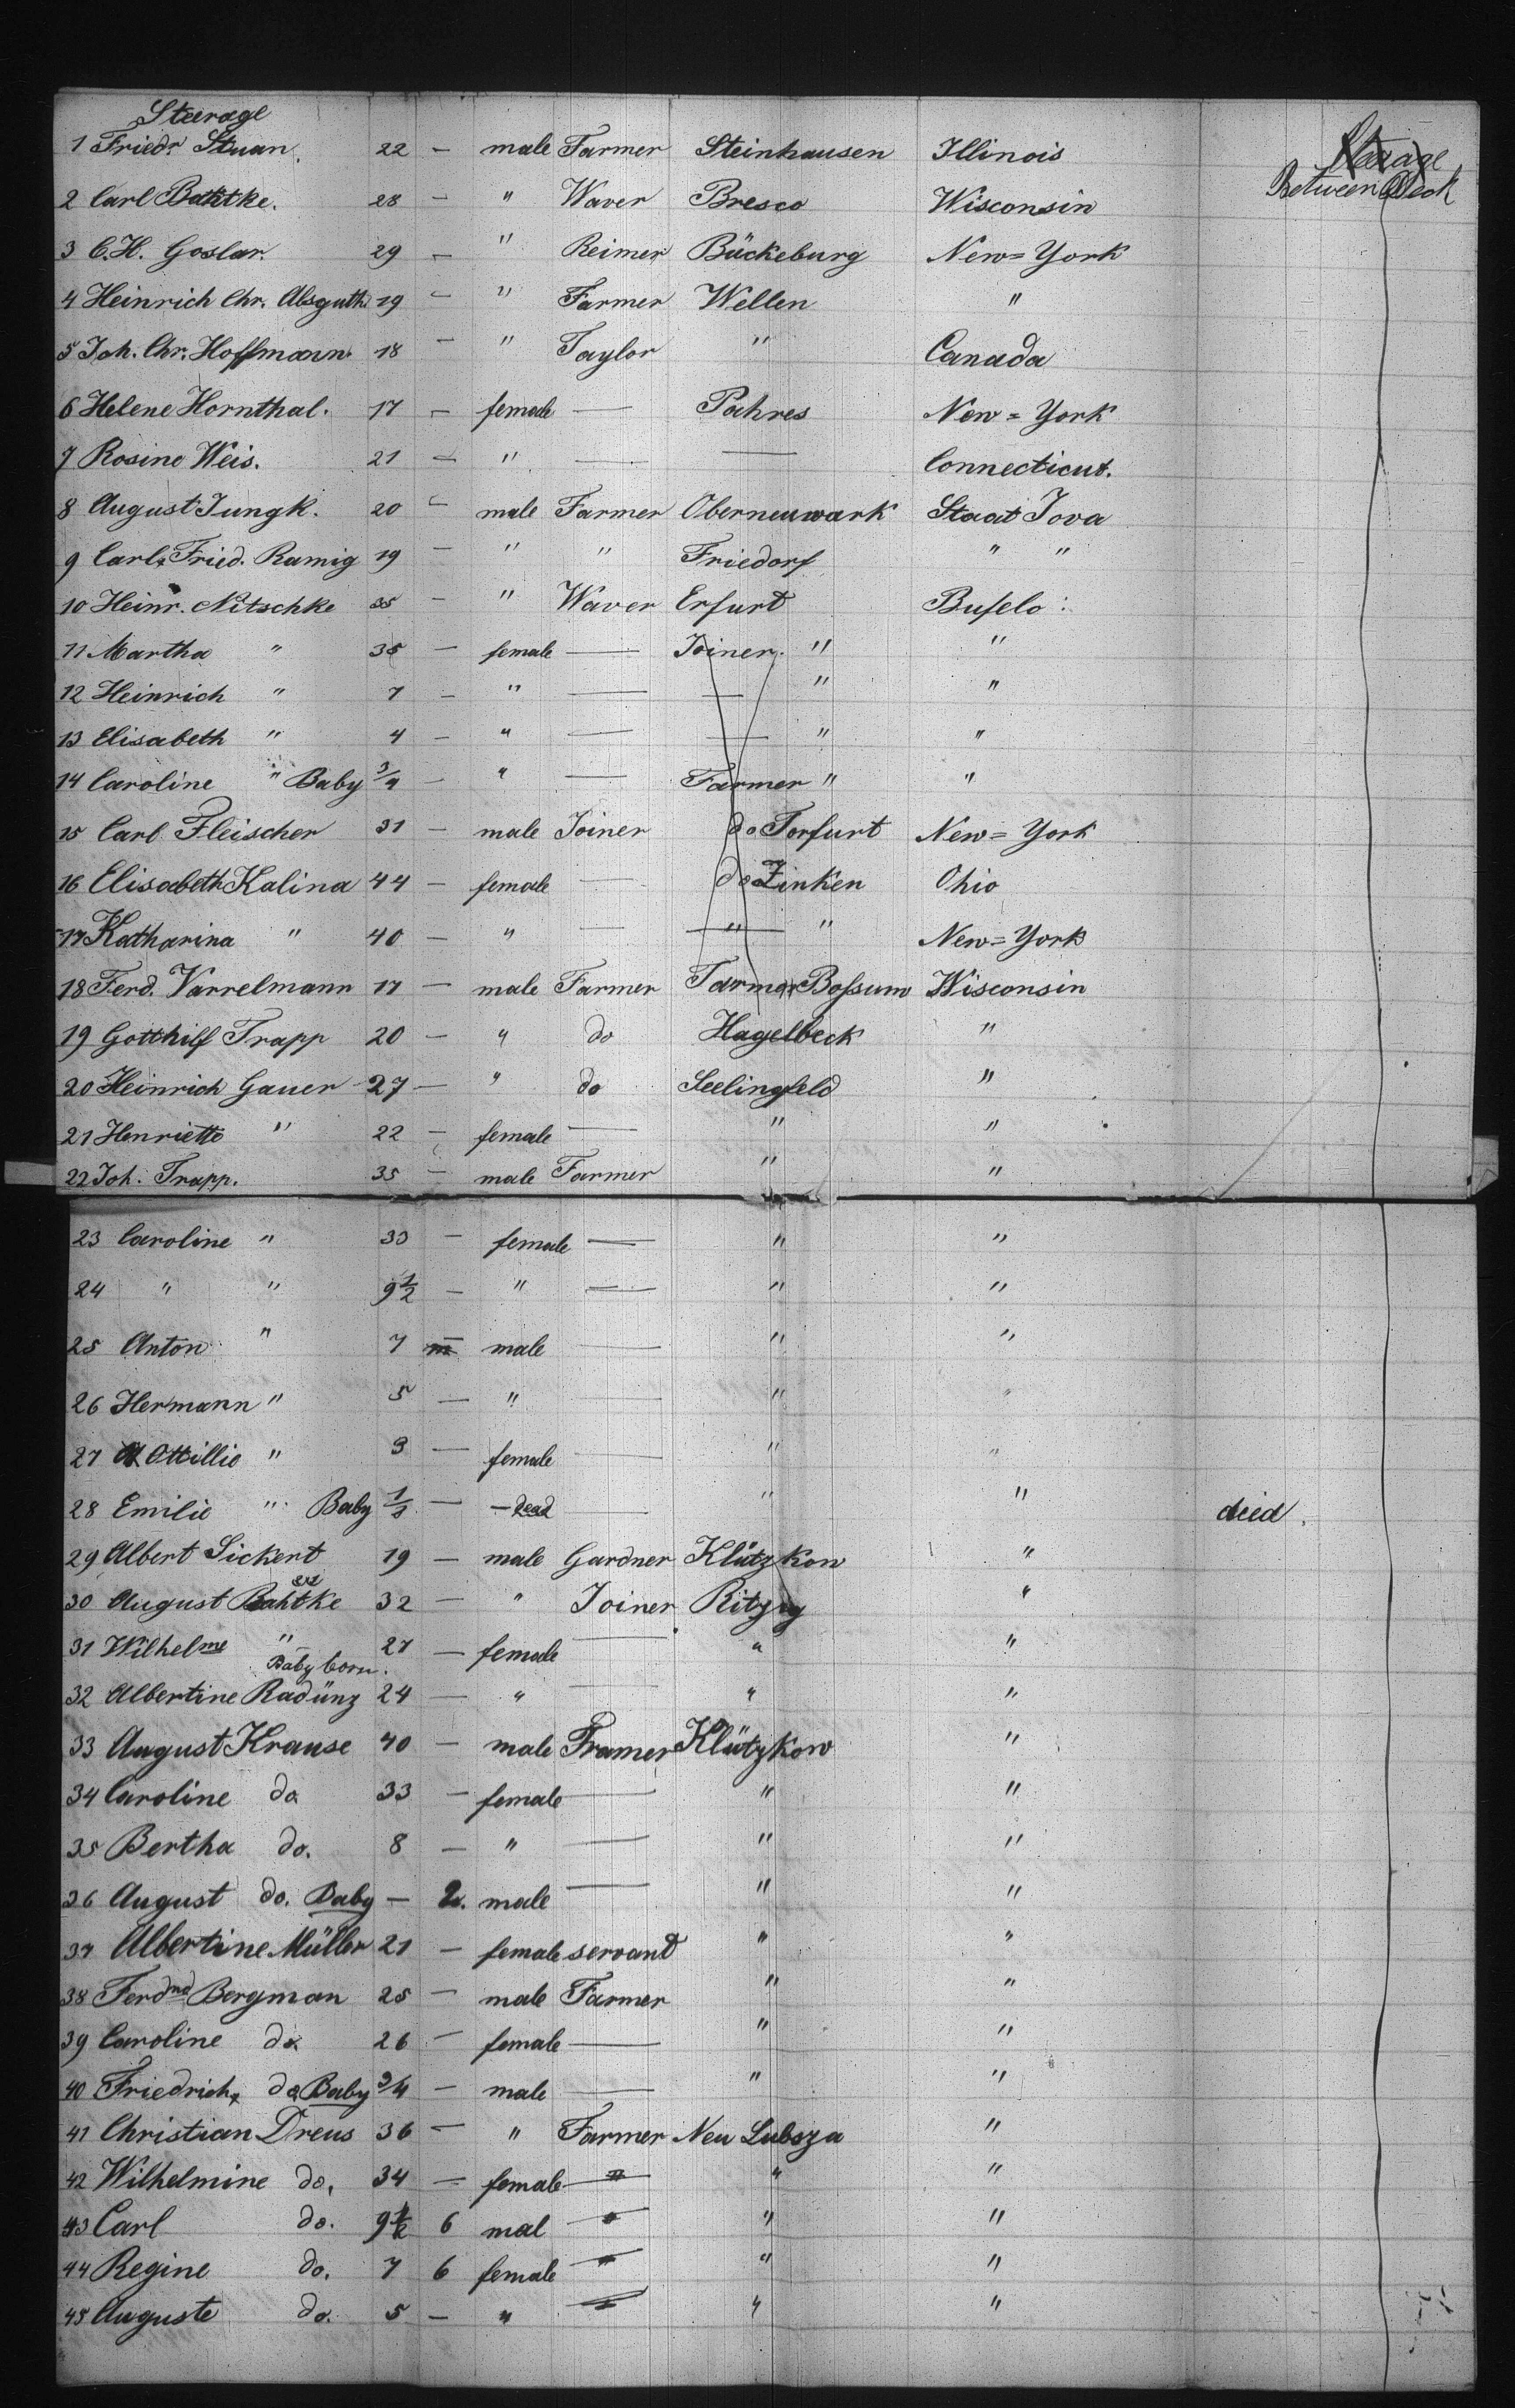 Steerage
1 Friedr Stuan. 22 — male Farmer Steinhausen Illinois Steerage
2 Carl Bahtke. 28 — " Waver Bresco Wisconsin Between Deck
3 C.H. Goslar. 29 — " Reimer Bückeburg New=York
4 Heinrich Chr. Absguth 19 — " Farmer Wellen "
5 Joh. Chr. Hoffmann 18 — " Taylor " Canada
6 Helene Hornthal. 17 — female — Pahres New=York
7 Rosine Weis. 21 — " — — Connecticut.
8 August Jungk. 20 — male Farmer Oberneuwark Staat Iova
9 Carl Fried. Ramig 19 — " " Friedorf " "
10 Heinr. Nitschke 35 — " Waver Erfurt Bufelo
11 Martha " 35 — female — Joiner. " "
12 Heinrich " 7 — " — — " "
13 Elisabeth " 4 — " — — " "
14 Caroline " Baby 3/4 — " — Farmer " "
15 Carl Fleischer 31 — male Joiner do Torfurt New=York
16 Elisabeth Kalina 44 — female — do Zinken Ohio
17 Katharina " 40 — " — " " New=York
18 Ferd. Varrelmann 17 — male Farmer Farmer Bossum Wisconsin
19 Gotthilf Trapp 20 — " do Hagelbeck "
20 Heinrich Gauer 27 — " do Seelingfeld "
21 Henriette " 22 — female — " "
22 Joh. Trapp. 35 — male Farmer " "
23 Caroline " 33 — female — " "
24 " " 9 1/2 — " — " "
25 Anton " 7 m male — " "
26 Hermann " 5 — " — " "
27 Ottillie " 3 — female — " "
28 Emilie " Baby — — dead — " " died.
29 Albert Sickert 19 — male Gardner Klützkow "
30 August Bahtke 32 — " Joiner Ritzig "
31 Wilhelme " 27 — female — " "
Baby born.
32 Albertine Radünz 24 — " — " "
33 August Krause 40 — male Framer Klützkow "
34 Caroline do 33 — female — " "
35 Bertha do. 8 — " — " "
36 August do. Baby — 2. male — " "
37 Albertine Müller 21 — female servant " "
38 Ferdnd Bergman 25 — male Farmer " "
39 Caroline do 26 — female — " "
40 Friedrich do Baby 3/4 — male — " "
41 Christian Dreus 36 — " Farmer Neu Lubsza "
42 Wilhelmine do. 34 — female — " "
43 Carl do. 9 1/2 6 mal — " "
44 Regine do. 7 6 female — " "
45 Auguste do. 5 — " — " "